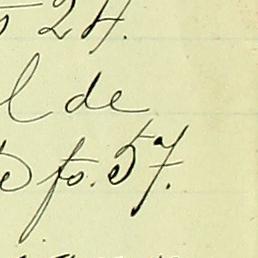 24.
de
fo. 57.